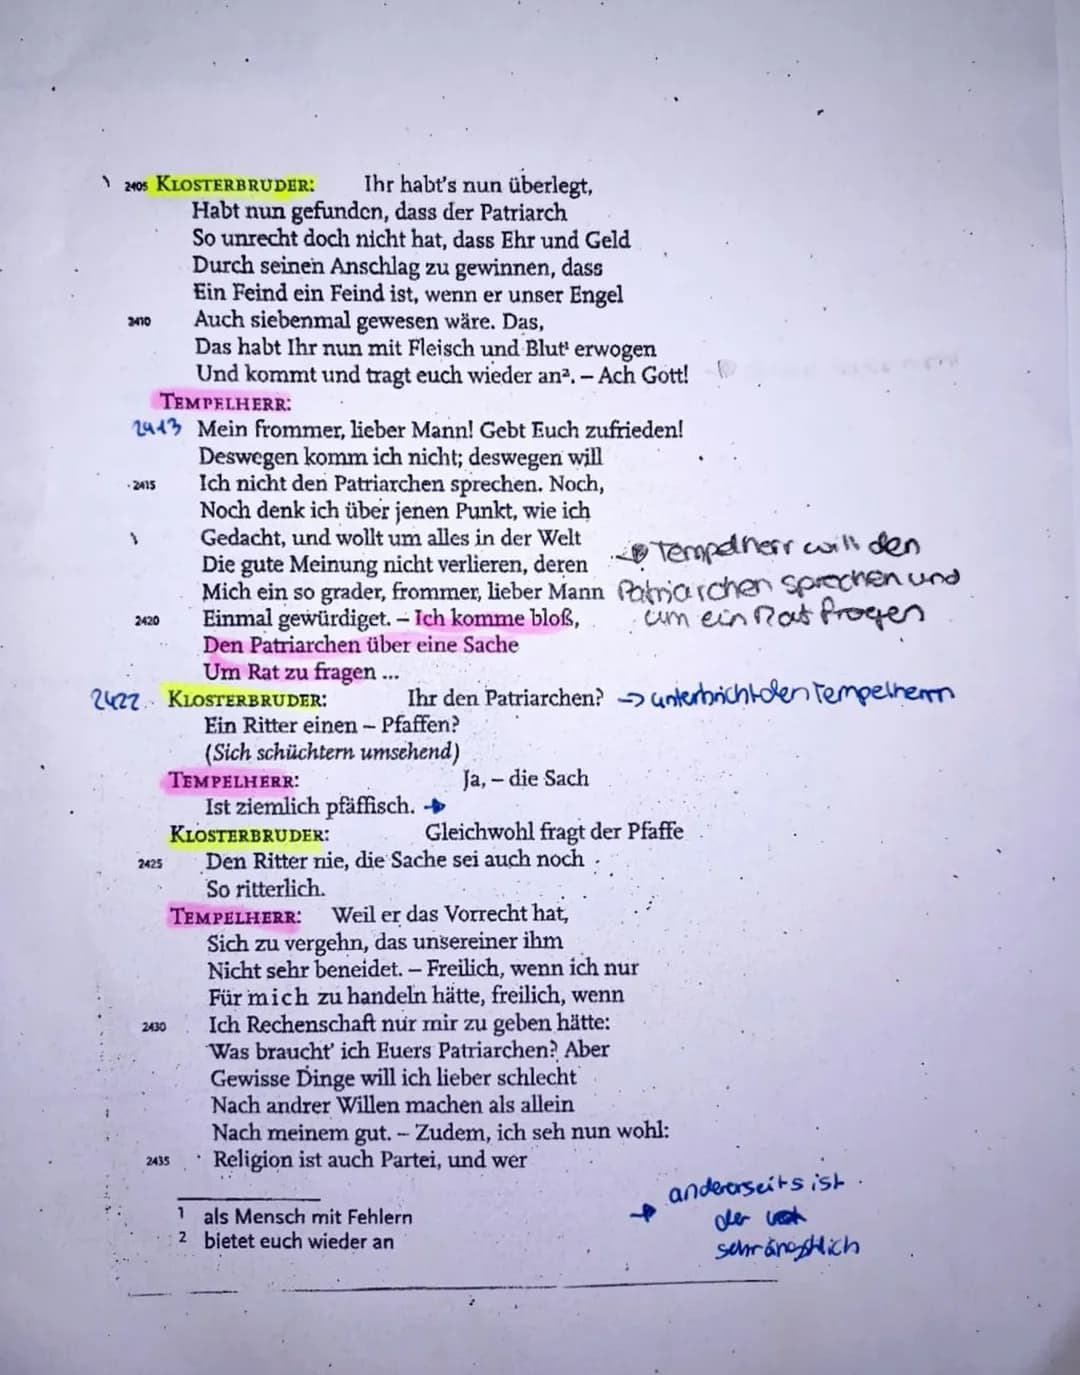 2405 KLOSTERBRUDER: Ihr habt's nun überlegt,
Habt nun gefunden, dass der Patriarch
So unrecht doch nicht hat, dass Ehr und Geld
Durch seinen Anschlag zu gewinnen, dass
Ein Feind ein Feind ist, wenn er unser Engel
2410 Auch siebenmal gewesen wäre. Das,
Das habt Ihr nun mit Fleisch und Blut¹ erwogen
Und kommt und tragt euch wieder an². – Ach Gott!
TEMPELHERR:
2413 Mein frommer, lieber Mann! Gebt Euch zufrieden!
Deswegen komm ich nicht; deswegen will
2415 Ich nicht den Patriarchen sprechen. Noch,
Noch denk ich über jenen Punkt, wie ich
Gedacht, und wollt um alles in der Welt
Die gute Meinung nicht verlieren, deren
Mich ein so grader, frommer, lieber Mann
2420 Einmal gewürdiget. – Ich komme bloß,
Den Patriarchen über eine Sache
Um Rat zu fragen ...
Tempelherr will den
Patriarchen sprechen und
um ein Rat fragen
2422 KLOSTERBRUDER: Ihr den Patriarchen? → unterbricht den Tempelherrn
Ein Ritter einen – Pfaffen?
(Sich schüchtern umsehend)
TEMPELHERR: Ja, – die Sach
Ist ziemlich pfäffisch. →
KLOSTERBRUDER: Gleichwohl fragt der Pfaffe
2425 Den Ritter nie, die Sache sei auch noch
So ritterlich.
TEMPELHERR: Weil er das Vorrecht hat,
Sich zu vergehn, das unsereiner ihm
Nicht sehr beneidet. – Freilich, wenn ich nur
Für mich zu handeln hätte, freilich, wenn
2430 Ich Rechenschaft nur mir zu geben hätte:
Was braucht' ich Euers Patriarchen? Aber
Gewisse Dinge will ich lieber schlecht
Nach andrer Willen machen als allein
Nach meinem gut. – Zudem, ich seh nun wohl:
2435 Religion ist auch Partei, und wer
1 als Mensch mit Fehlern
2 bietet euch wieder an
→ andererseits ist
der
sehr ängstlich